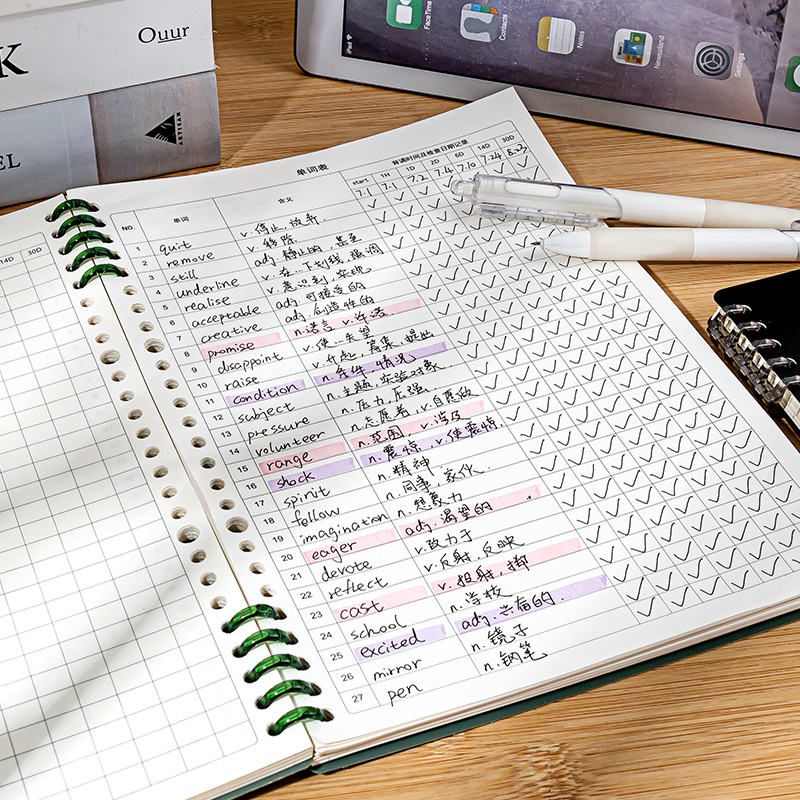 Ouur
K
ARTISAN
EL
iPad
FaceTime
Contacts
Notes
Newsstand
Settings
14D 30D
单词表
背诵时间及检查日期记录
NO. 单词 含义 start 1H 1D 2D 6D 14D 30D
7.1 7.1 7.2 7.4 7.10 7.24 8.23
1 quit v. 停止, 放弃.
2 remove v. 移除
3 still adj. 静止的, 甚至
4 underline v. 在...下划线, 强调
5 realise v. 意识到, 实现
6 acceptable adj. 可接受的
7 creative adj. 创造性的
8 promise n. 诺言 v. 许诺.
9 disappoint v. 使...失望
10 raise v. 升起, 筹集, 提出
11 condition n. 条件, 情况
12 subject n. 主题, 实验对象
13 pressure n. 压力, 压强.
14 volunteer n. 志愿者, v. 自愿做
15 range n. 范围 v. 涉及
16 shock n. 震惊, v. 使震惊.
17 spirit n. 精神
18 fellow n. 同事, 家伙.
19 imagination n. 想象力
20 eager adj. 渴望的
21 devote v. 致力于
22 reflect v. 反射, 反映
23 cast v. 投射, 掷
24 school n. 学校
25 excited adj.
26 mirror n. 镜子
27 pen n. 钢笔